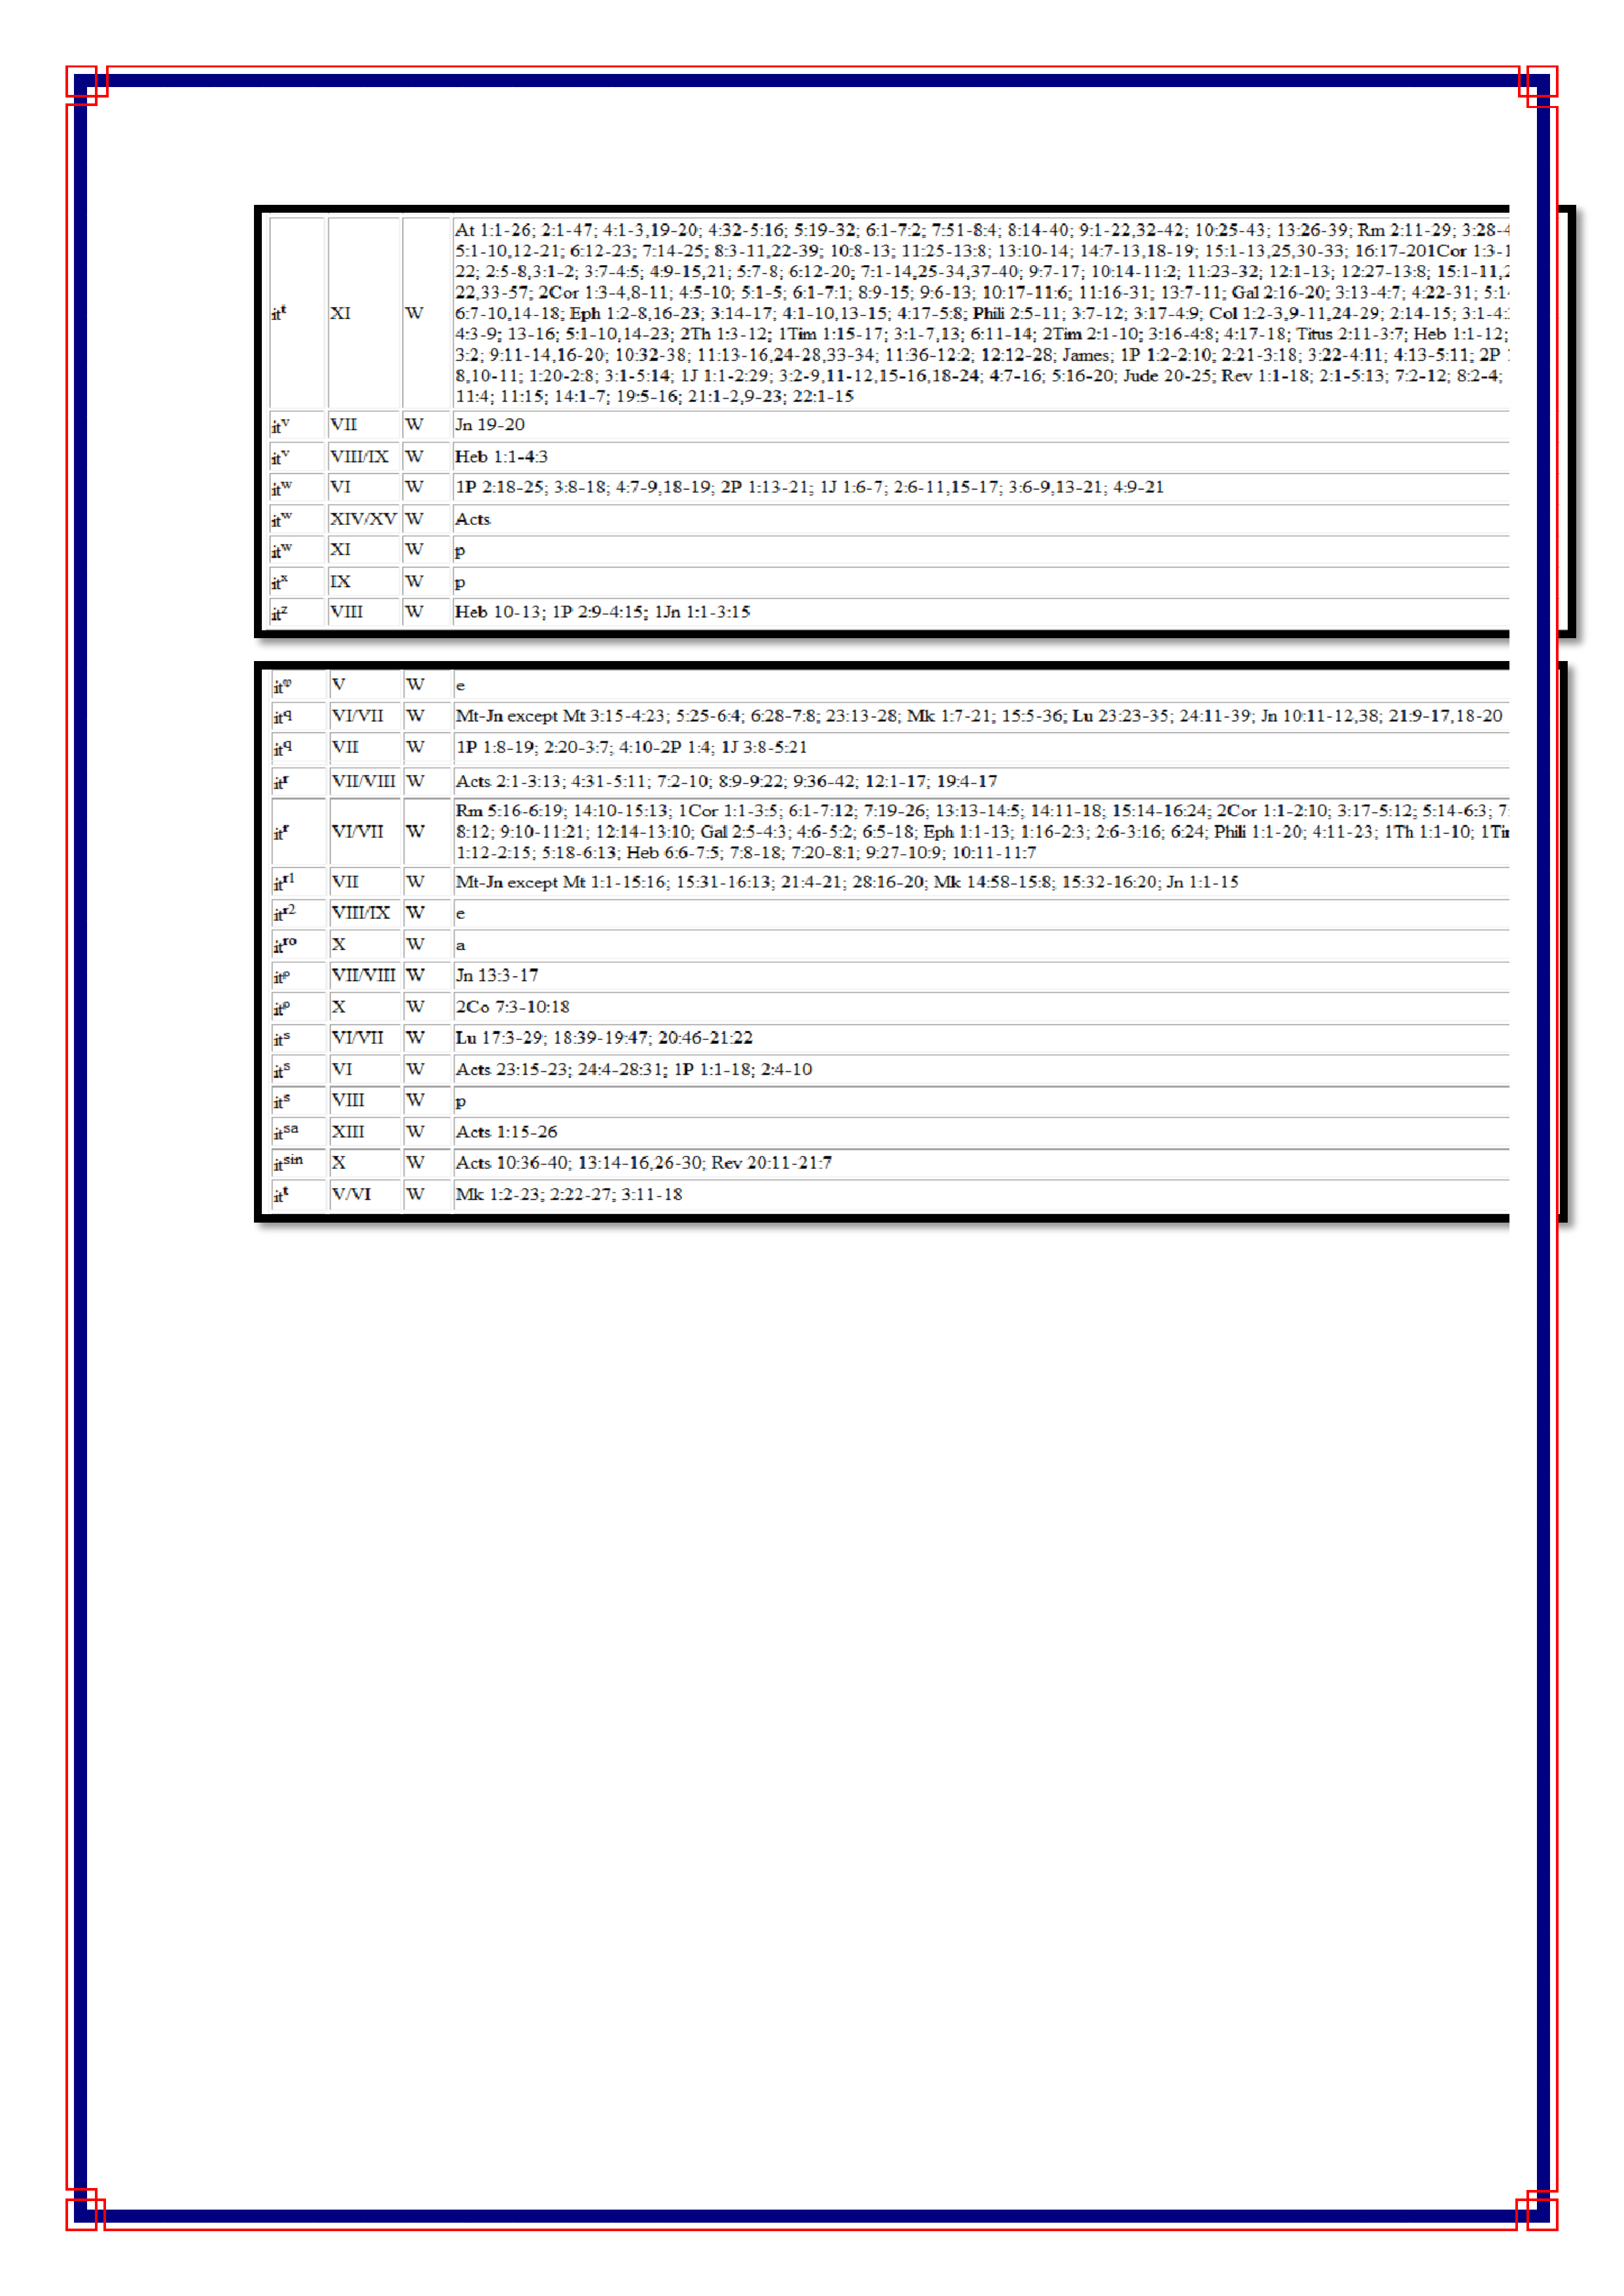 it^t XI W At 1:1-26; 2:1-47; 4:1-3,19-20; 4:32-5:16; 5:19-32; 6:1-7:2; 7:51-8:4; 8:14-40; 9:1-22,32-42; 10:25-43; 13:26-39; Rm 2:11-29; 3:28-
5:1-10,12-21; 6:12-23; 7:14-25; 8:3-11,22-39; 10:8-13; 11:25-13:8; 13:10-14; 14:7-13,18-19; 15:1-13,25,30-33; 16:17-201Cor 1:3-
22; 2:5-8,3:1-2; 3:7-4:5; 4:9-15,21; 5:7-8; 6:12-20; 7:1-14,25-34,37-40; 9:7-17; 10:14-11:2; 11:23-32; 12:1-13; 12:27-13:8; 15:1-11,
22,33-57; 2Cor 1:3-4,8-11; 4:5-10; 5:1-5; 6:1-7:1; 8:9-15; 9:6-13; 10:17-11:6; 11:16-31; 13:7-11; Gal 2:16-20; 3:13-4:7; 4:22-31; 5:1-
6:7-10,14-18; Eph 1:2-8,16-23; 3:14-17; 4:1-10,13-15; 4:17-5:8; Phili 2:5-11; 3:7-12; 3:17-4:9; Col 1:2-3,9-11,24-29; 2:14-15; 3:1-4:
4:3-9; 13-16; 5:1-10,14-23; 2Th 1:3-12; 1Tim 1:15-17; 3:1-7,13; 6:11-14; 2Tim 2:1-10; 3:16-4:8; 4:17-18; Titus 2:11-3:7; Heb 1:1-12;
3:2; 9:11-14,16-20; 10:32-38; 11:13-16,24-28,33-34; 11:36-12:2; 12:12-28; James; 1P 1:2-2:10; 2:21-3:18; 3:22-4:11; 4:13-5:11; 2P
8,10-11; 1:20-2:8; 3:1-5:14; 1J 1:1-2:29; 3:2-9,11-12,15-16,18-24; 4:7-16; 5:16-20; Jude 20-25; Rev 1:1-18; 2:1-5:13; 7:2-12; 8:2-4;
11:4; 11:15; 14:1-7; 19:5-16; 21:1-2,9-23; 22:1-15
it^v VII W Jn 19-20
it^v VIII/IX W Heb 1:1-4:3
it^w VI W 1P 2:18-25; 3:8-18; 4:7-9,18-19; 2P 1:13-21; 1J 1:6-7; 2:6-11,15-17; 3:6-9,13-21; 4:9-21
it^w XIV/XV W Acts
it^w XI W p
it^x IX W p
it^z VIII W Heb 10-13; 1P 2:9-4:15; 1Jn 1:1-3:15
it^φ V W e
it^q VI/VII W Mt-Jn except Mt 3:15-4:23; 5:25-6:4; 6:28-7:8; 23:13-28; Mk 1:7-21; 15:5-36; Lu 23:23-35; 24:11-39; Jn 10:11-12,38; 21:9-17,18-20
it^q VII W 1P 1:8-19; 2:20-3:7; 4:10-2P 1:4; 1J 3:8-5:21
it^r VII/VIII W Acts 2:1-3:13; 4:31-5:11; 7:2-10; 8:9-9:22; 9:36-42; 12:1-17; 19:4-17
it^r VI/VII W Rm 5:16-6:19; 14:10-15:13; 1Cor 1:1-3:5; 6:1-7:12; 7:19-26; 13:13-14:5; 14:11-18; 15:14-16:24; 2Cor 1:1-2:10; 3:17-5:12; 5:14-6:3; 7:
8:12; 9:10-11:21; 12:14-13:10; Gal 2:5-4:3; 4:6-5:2; 6:5-18; Eph 1:1-13; 1:16-2:3; 2:6-3:16; 6:24; Phili 1:1-20; 4:11-23; 1Th 1:1-10;
1:12-2:15; 5:18-6:13; Heb 6:6-7:5; 7:8-18; 7:20-8:1; 9:27-10:9; 10:11-11:7
it^r1 VII W Mt-Jn except Mt 1:1-15:16; 15:31-16:13; 21:4-21; 28:16-20; Mk 14:58-15:8; 15:32-16:20; Jn 1:1-15
it^r2 VIII/IX W e
it^ro X W a
it^ρ VII/VIII W Jn 13:3-17
it^ρ X W 2Co 7:3-10:18
it^s VI/VII W Lu 17:3-29; 18:39-19:47; 20:46-21:22
it^s VI W Acts 23:15-23; 24:4-28:31; 1P 1:1-18; 2:4-10
it^s VIII W p
it^sa XIII W Acts 1:15-26
it^sin X W Acts 10:36-40; 13:14-16,26-30; Rev 20:11-21:7
it^t V/VI W Mk 1:2-23; 2:22-27; 3:11-18